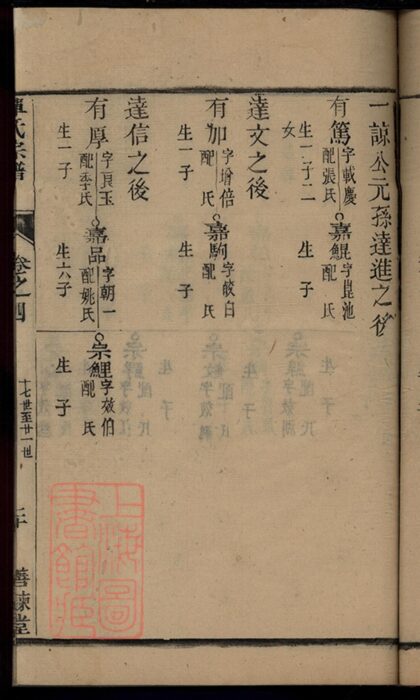 一諒公元孫達進之後
有篤字載慶配張氏生一子二女
嘉鯤字崑池配 氏生 子
達文之後
有加字增倍配 氏生一子
嘉駒字皎白配 氏生 子
達信之後
有厚字良玉配季氏生一子
嘉品字朝一配姚氏生六子
宗鯉字效伯配 氏生 子
氏宗譜
卷之四
十七世至廿一世
善諫堂
上海圖書館藏